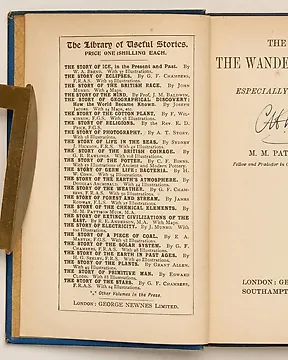 The Library of Useful Stories.
PRICE ONE SHILLING EACH.
THE STORY OF ICE, in the Present and Past. By
W. A. BREND. With 37 Illustrations.
THE STORY OF ECLIPSES. By G. F. CHAMBERS,
F.R.A.S. With 19 Illustrations.
THE STORY OF THE BRITISH RACE. By JOHN
MUNRO. With 4 Maps.
THE STORY OF THE MIND. By Prof. J. M. BALDWIN.
THE STORY OF GEOGRAPHICAL DISCOVERY:
How the World Became Known. By JOSEPH
JACOBS. With 24 Maps, etc.
THE STORY OF THE COTTON PLANT. By F. WIL-
KINSON, F.G.S. With 38 Illustrations.
THE STORY OF RELIGIONS. By the Rev. E. D.
PRICE, F.G.S.
THE STORY OF PHOTOGRAPHY. By A. T. STORY.
With 38 Illustrations.
THE STORY OF LIFE IN THE SEAS. By SYDNEY
J. HICKSON, F.R.S. With 42 Illustrations.
THE STORY OF THE BRITISH COINAGE. By
G. B. RAWLINGS. With 108 Illustrations.
THE STORY OF THE POTTER. By C. F. BINNS.
With 57 Illustrations of Ancient and Modern Pottery.
THE STORY OF GERM LIFE: BACTERIA. By H.
W. CONN. With 34 Illustrations.
THE STORY OF THE EARTH'S ATMOSPHERE. By
DOUGLAS ARCHIBALD. With 44 Illustrations.
THE STORY OF THE WEATHER. By G. F. CHAM-
BERS, F.R.A.S. With 50 Illustrations.
THE STORY OF FOREST AND STREAM. By JAMES
RODWAY, F.L.S. With 27 Illustrations.
THE STORY OF THE CHEMICAL ELEMENTS. By
M. M. PATTISON MUIR, M.A.
THE STORY OF EXTINCT CIVILIZATIONS OF THE
EAST. By R. E. ANDERSON, M.A. With Maps.
THE STORY OF ELECTRICITY. By J. MUNRO. With
100 Illustrations.
THE STORY OF A PIECE OF COAL. By E. A.
MARTIN, F.G.S. With 38 Illustrations.
THE STORY OF THE SOLAR SYSTEM. By G. F.
CHAMBERS, F.R.A.S. With 28 Illustrations.
THE STORY OF THE EARTH IN PAST AGES. By
H. G. SEELEY, F.R.S. With 40 Illustrations.
THE STORY OF THE PLANTS. By GRANT ALLEN.
With 49 Illustrations.
THE STORY OF PRIMITIVE MAN. By EDWARD
CLODD. With 88 Illustrations.
THE STORY OF THE STARS. By G. F. CHAMBERS,
F.R.A.S. With 24 Illustrations.
*** Other Volumes in the Press.
LONDON: GEORGE NEWNES LIMITED.
THE
THE WANDE
ESPECIALLY
M. M. PAT
Fellow and Prælector in C
LONDON: GE
SOUTHAMPT